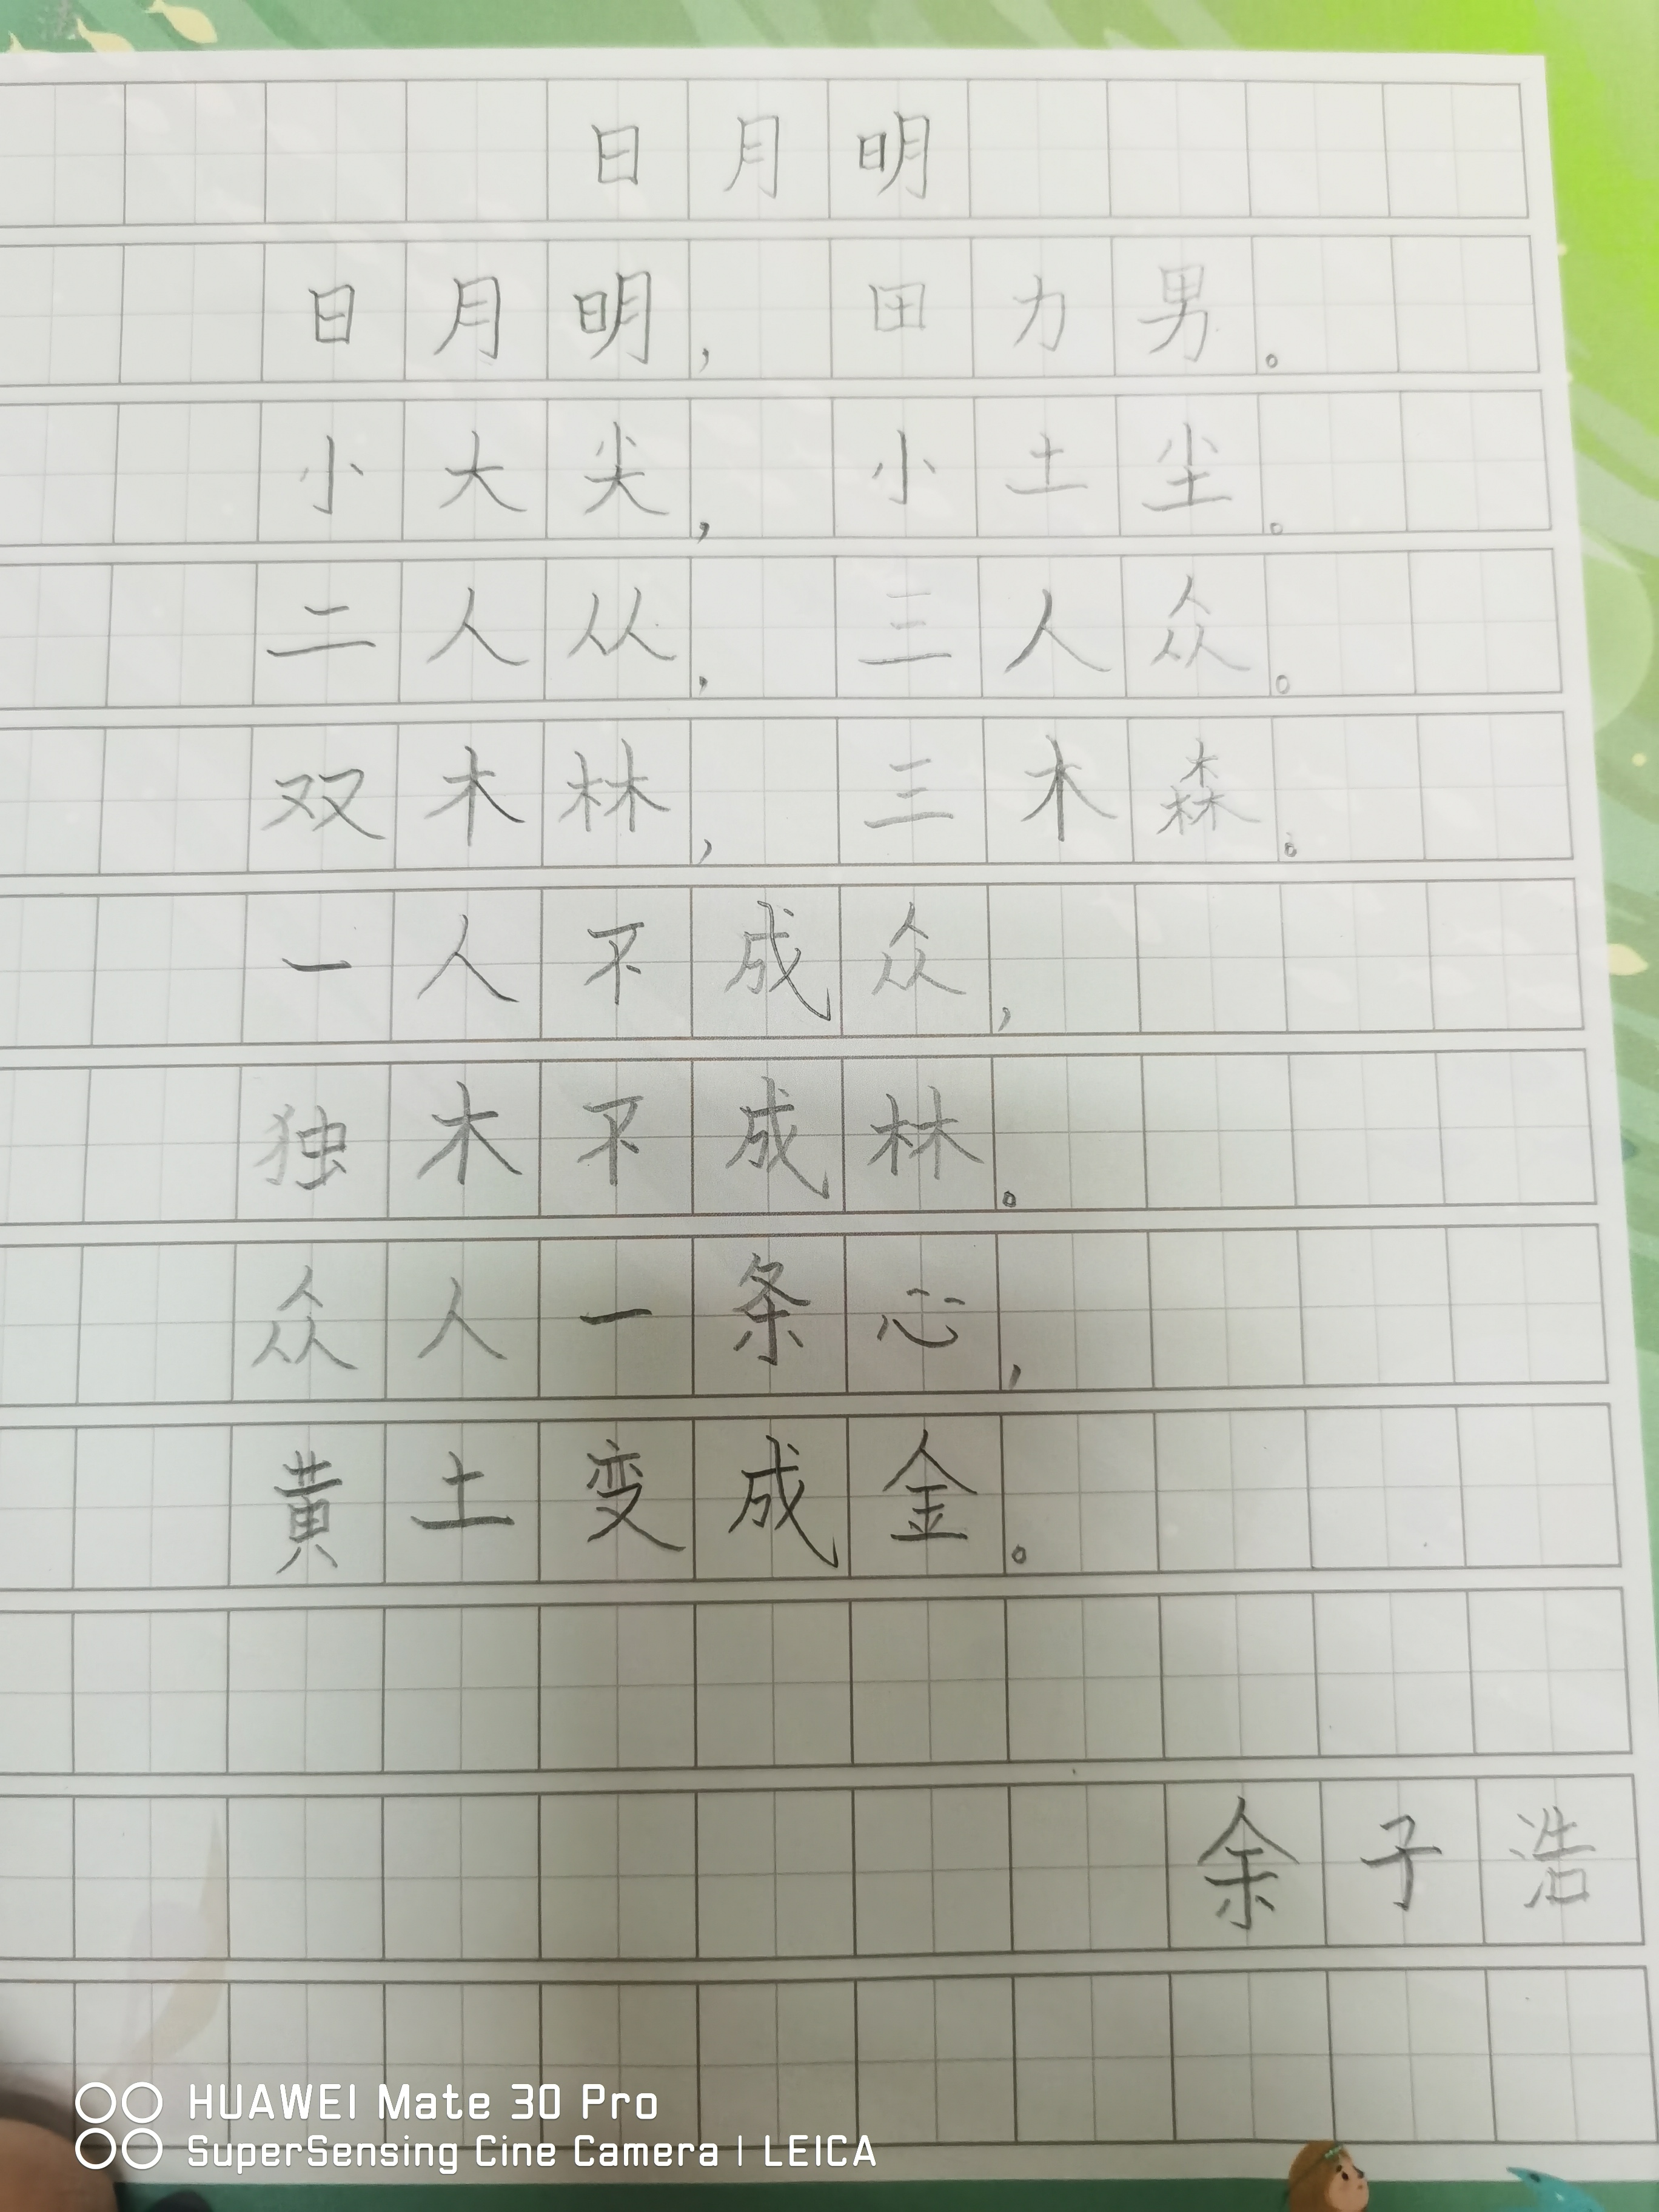 日月明
日月明，田力男。
小大尖，小土尘。
二人从，三人众。
双木林，三木森。
一人不成众，
独木不成林。
众人一条心，
黄土变成金。
余子浩
HUAWEI Mate 30 Pro
SuperSensing Cine Camera | LEICA